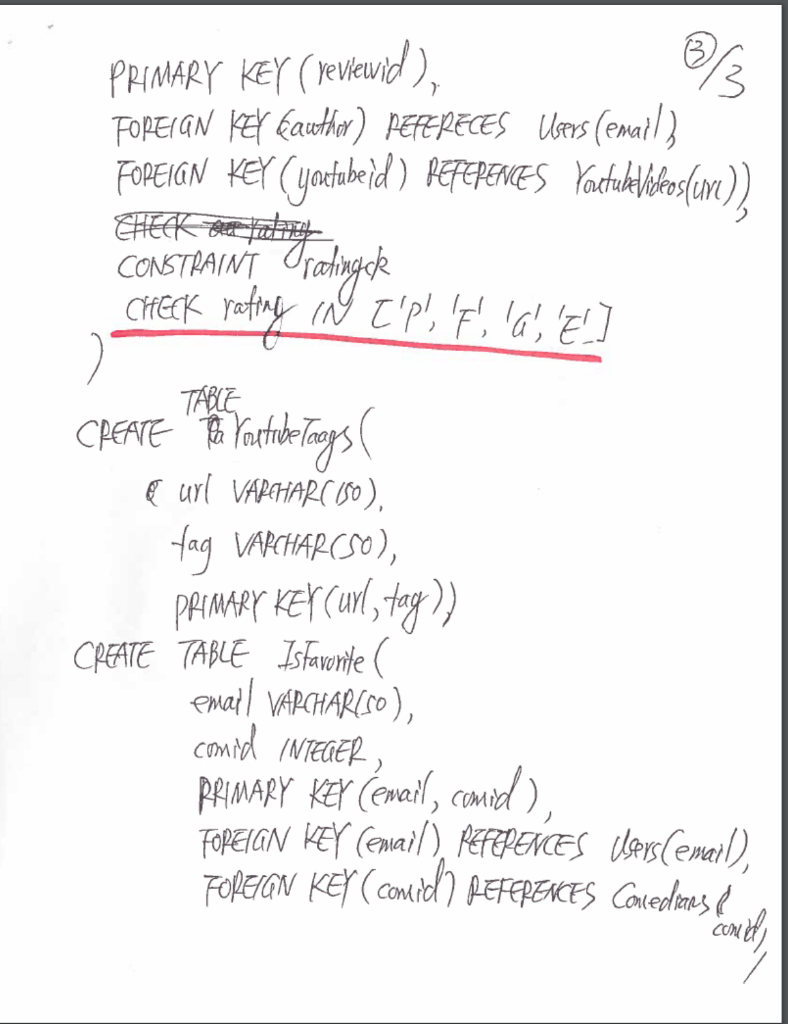 3/3
PRIMARY KEY (reviewid),
FOREIGN KEY (author) REFERECES Users(email),
FOREIGN KEY (youtubeid) REFERENCES YoutubeVideos(url)),
CHECK rating
CONSTRAINT ratingck
CHECK rating IN ['P', 'F', 'G', 'E']
)
TABLE
CREATE YoutubeTaags(
url VARCHAR(150),
tag VARCHAR(50),
PRIMARY KEY(url, tag))
CREATE TABLE IsFavorite(
email VARCHAR(50),
comid INTEGER,
PRIMARY KEY (email, comid),
FOREIGN KEY (email) REFERENCES Users(email),
FOREIGN KEY (comid) REFERENCES Comedians(
comid),
)